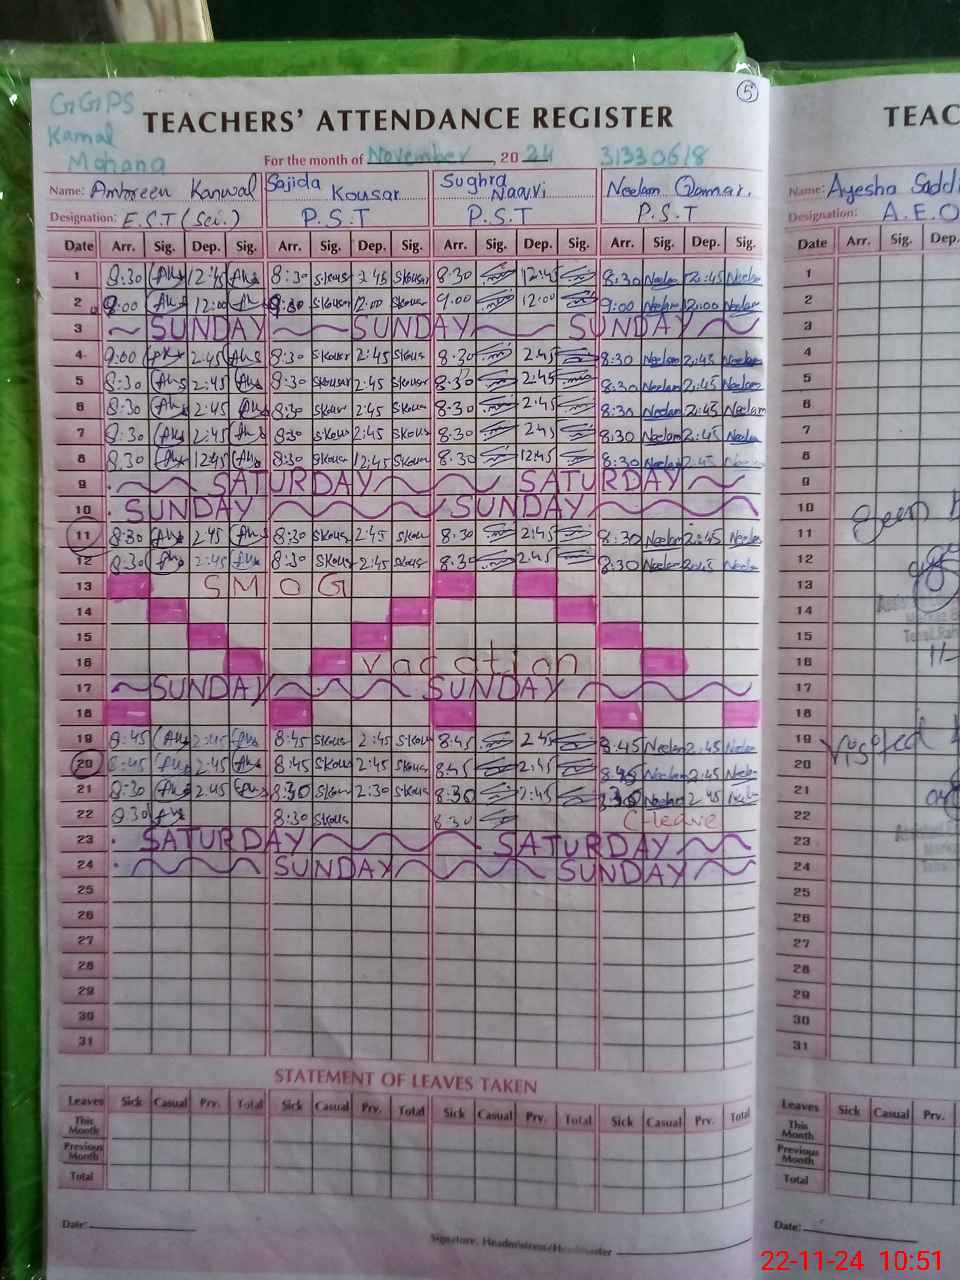 GGPS
Kamal
Mohana
5
TEACHERS' ATTENDANCE REGISTER
For the month of November, 2024 31330618
Name: Ambreen Kanwal Sajida Kousar Sughra Naqvi Neelam Qamar.
Designation: E.S.T (Sci.) P.S.T P.S.T P.S.T
Date Arr. Sig. Dep. Sig. Arr. Sig. Dep. Sig. Arr. Sig. Dep. Sig. Arr. Sig. Dep. Sig.
1 8:30 12:45 8:30 Skousr 2:45 Skousr 8:30 12:45 8:30 Neelam 12:45 Neelam
2 9:00 12:00 9:00 Skousr 12:00 Skousr 9:00 12:00 9:00 Neelam 12:00 Neelam
3 SUNDAY SUNDAY SUNDAY
4 9:00 2:45 8:30 Skousr 2:45 Skous 8:30 2:45 8:30 Neelam 2:45 Neelam
5 8:30 2:45 8:30 Skousr 2:45 Skous 8:30 2:45 8:30 Neelam 2:45 Neelam
6 8:30 2:45 8:30 Skous 2:45 Skous 8:30 2:45 8:30 Neelam 2:45 Neelam
7 8:30 2:45 8:30 Skous 2:45 Skous 8:30 2:45 8:30 Neelam 2:45 Neelam
8 8:30 12:45 8:30 Skous 12:45 Skous 8:30 12:45 8:30 Neelam 2:45
9 SATURDAY SATURDAY
10 SUNDAY SUNDAY
11 8:30 2:45 8:30 Skous 2:45 Skou 8:30 2:45 8:30 Neelam 2:45 Neelam
12 8:30 2:45 8:30 Skous 2:45 Skous 8:30 2:45 8:30 Neelam 2:45 Neelam
13 SMOG
14
15
16 vacation
17 SUNDAY SUNDAY
18
19 8:45 2:45 8:45 Skous 2:45 Skou 8:45 2:45 8:45 Neelam 2:45 Neelam
20 8:45 2:45 8:45 Skous 2:45 Skous 8:45 2:45 8:45 Neelam 2:45 Neelam
21 8:30 2:45 8:30 Skous 2:30 Skous 8:30 2:45 8:30 Neelam 2:45 Neelam
22 8:30 8:30 Skous 8:30 C-leave
23 SATURDAY SATURDAY
24 SUNDAY SUNDAY
25
26
27
28
29
30
31
STATEMENT OF LEAVES TAKEN
Leaves Sick Casual Prv. Total Sick Casual Prv. Total Sick Casual Prv. Total Sick Casual Prv. Total
This Month
Previous Month
Total
Date:
Signature. Headmistress/Headmaster
TEAC
Name: Ayesha Saddi
Designation: A.E.O
Date Arr. Sig. Dep.
1
2
3
4
5
6
7
8
9
10
11 Seen
12
13
14
15
16 11-
17
18
19 Visited
20
21
22
23
24
25
26
27
28
29
30
31
Leaves Sick Casual Prv.
This Month
Previous Month
Total
Date:
22-11-24 10:51